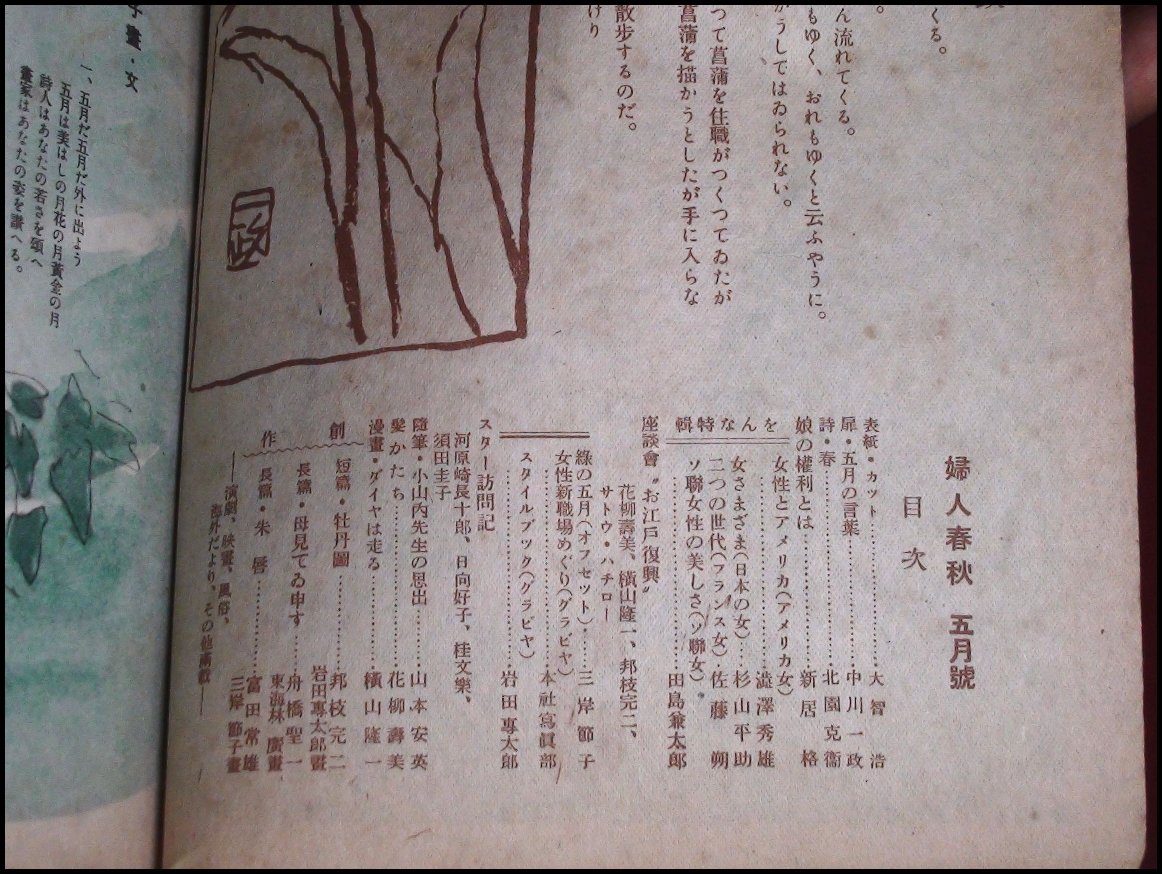 くる。
ん流れてくる。
もゆく、おれもゆくと云ふやうに。
うしてはゐられない。
つて菖蒲を住職がつくつてゐたが
菖蒲を描かうとしたが手に入らな
散歩するのだ。
けり
一政
婦人春秋 五月號
目次
表紙・カット……大智浩
扉・五月の言葉……中川一政
詩・春……北園克衞
娘の權利とは……新居格
をんな特輯
女性とアメリカ(アメリカ女)……澁澤秀雄
女さまざま(日本の女)……杉山平助
二つの世代(フランス女)……佐藤朔
ソ聯女性の美しさ(ソ聯女)……田島兪太郎
座談會〝お江戸復興〟
花柳壽美、橫山隆一、邦枝完二、
サトウ・ハチロー
綠の五月(オフセット)……三岸節子
女性新職場めぐり(グラビヤ)……本社寫眞部
スタイルブック(グラビヤ)……岩田專太郎
スター訪問記
河原崎長十郎、日向好子、桂文樂、
須田圭子
隨筆・小山内先生の思出……山本安英
髪かたち……花柳壽美
漫畫・ダイヤは走る……橫山隆一
創作
短篇・牡丹圖……邦枝完二
岩田專太郎畫
長篇・母見てゐ申す……舟橋聖一
東海林廣畫
長篇・朱唇……富田常雄
三岸節子畫
――演劇、映畫、風俗、
海外だより、その他滿載――
子畫・文
一、五月だ五月だ外に出よう
五月は美はしの月花の月黃金の月
詩人はあなたの若さを頌へ
畫家はあなたの姿を讃へる。